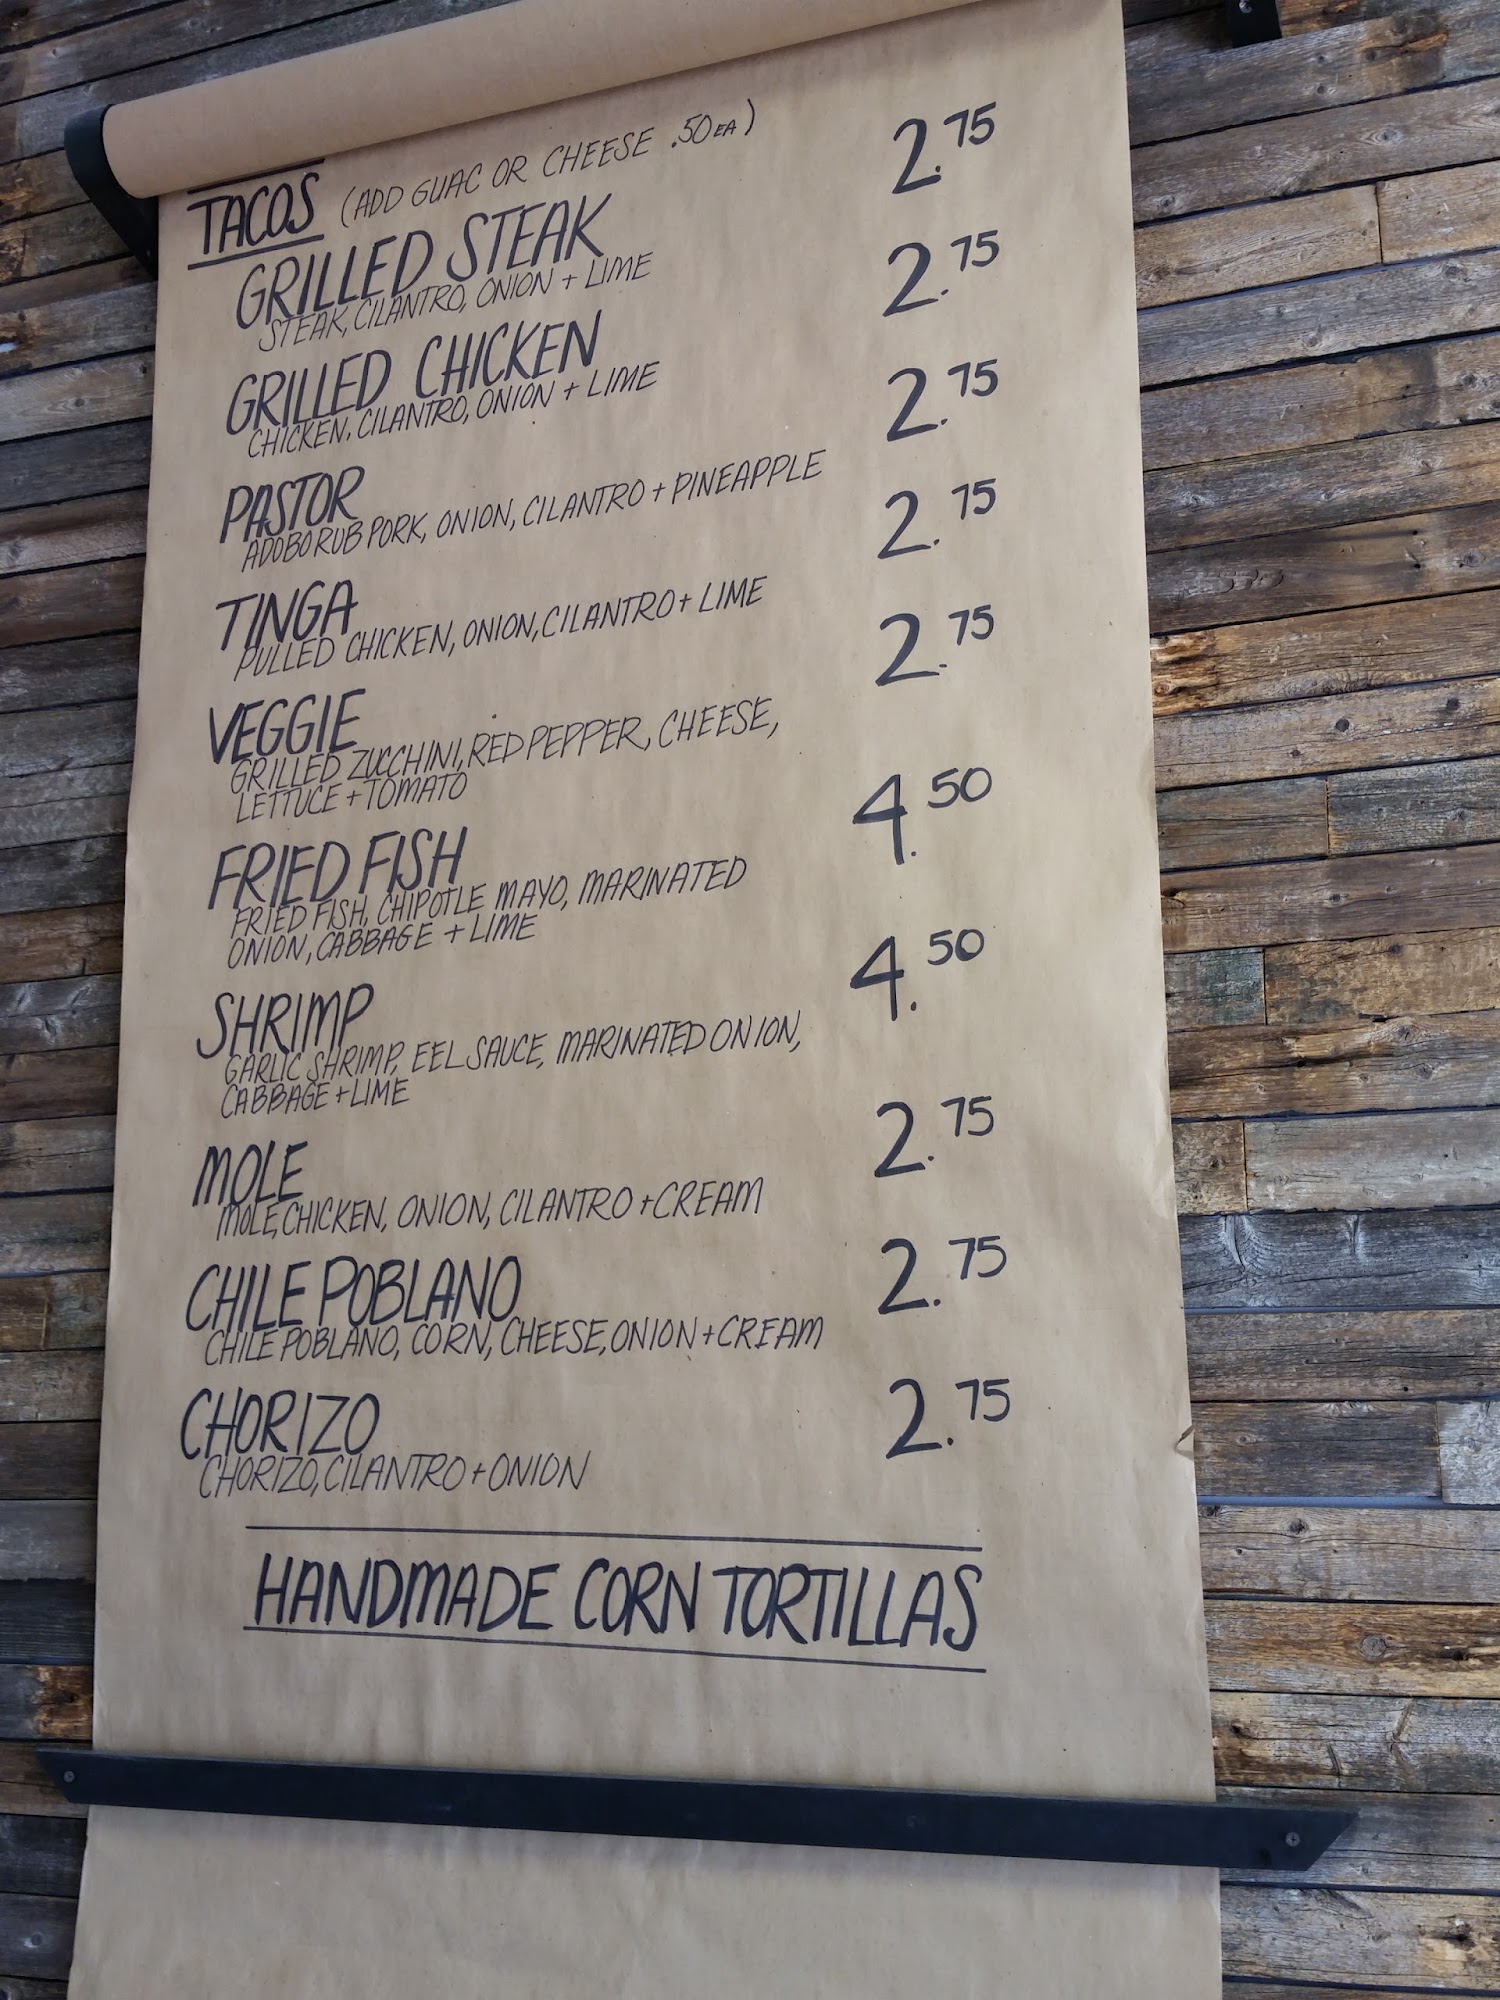 TACOS (ADD GUAC OR CHEESE .50 EA)
GRILLED STEAK 2.75
STEAK, CILANTRO, ONION + LIME
GRILLED CHICKEN 2.75
CHICKEN, CILANTRO, ONION + LIME
PASTOR 2.75
ADOBO RUB PORK, ONION, CILANTRO + PINEAPPLE
TINGA 2.75
PULLED CHICKEN, ONION, CILANTRO + LIME
VEGGIE 2.75
GRILLED ZUCCHINI, RED PEPPER, CHEESE,
LETTUCE + TOMATO
FRIED FISH 4.50
FRIED FISH, CHIPOTLE MAYO, MARINATED
ONION, CABBAGE + LIME
SHRIMP 4.50
GARLIC SHRIMP, EEL SAUCE, MARINATED ONION,
CABBAGE + LIME
MOLE 2.75
MOLE, CHICKEN, ONION, CILANTRO + CREAM
CHILE POBLANO 2.75
CHILE POBLANO, CORN, CHEESE, ONION + CREAM
CHORIZO 2.75
CHORIZO, CILANTRO + ONION
HANDMADE CORN TORTILLAS